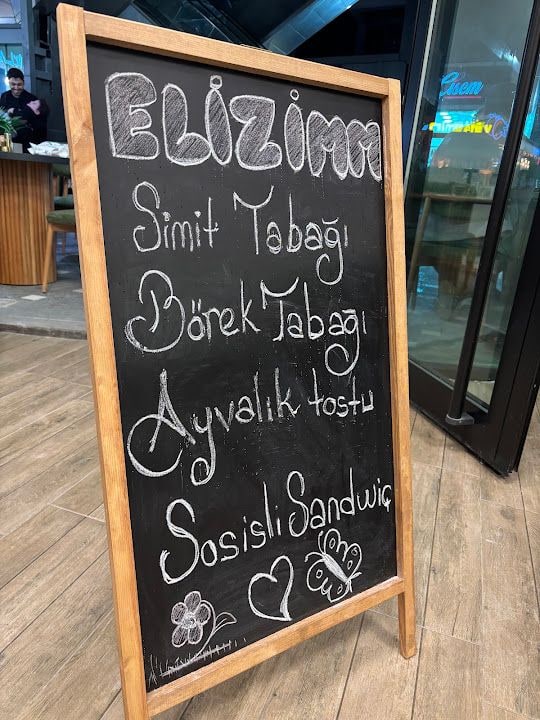 ELİZİMM
Simit Tabağı
Börek Tabağı
Ayvalık tostu
Sosisli Sandwiç